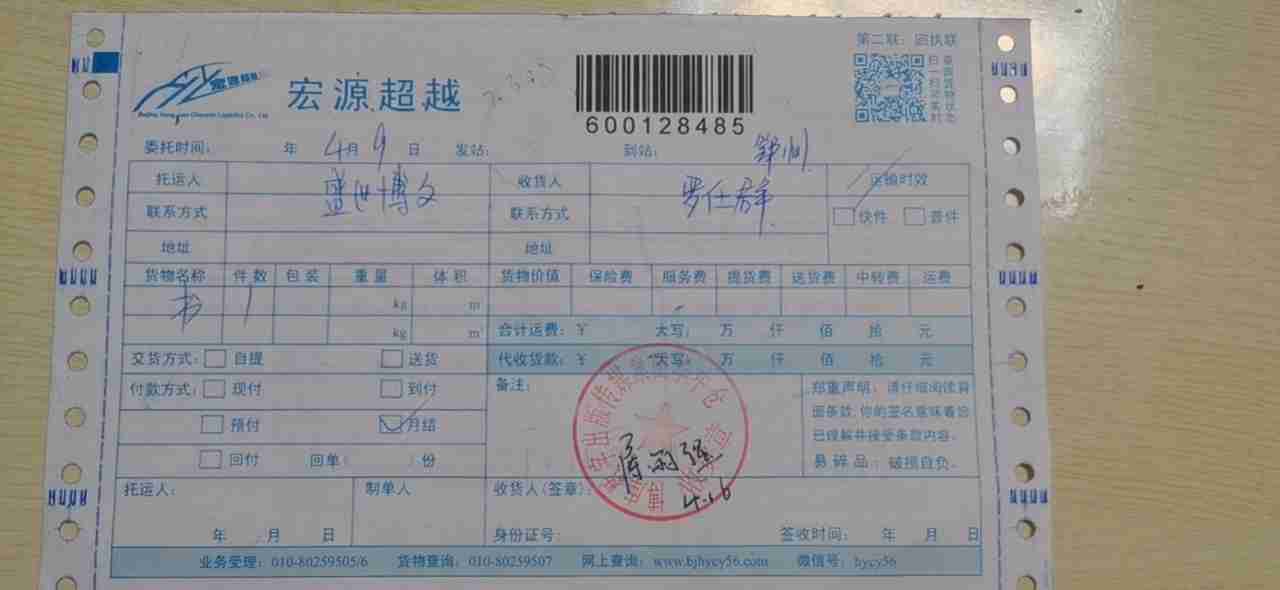 第二联：回执联
宏源超越
600128485
扫一扫
委托时间： 年 4月 9 日 发站： 到站： 郑州
托运人 盛世博文 收货人 罗仕群 运输时效
联系方式 联系方式 快件 普件
地址 地址
货物名称 件数 包装 重量 体积 货物价值 保险费 服务费 提货费 送货费 中转费 运费
书 1 kg m
kg m 合计运费：￥ 大写： 万 仟 佰 拾 元
交货方式： 自提 送货 代收货款：￥ 大写： 万 仟 佰 拾 元
付款方式： 现付 到付 备注： 郑重声明：请仔细阅读背
面条款,你的签名意味着您
预付 月结 已理解并接受条款内容。
回付 回单( )份 易碎品：破损自负。
4.16
托运人： 制单人 收货人(签章)：
年 月 日 身份证号： 签收时间： 年 月 日
业务受理：010-80259505/6 货物查询：010-80259507 网上查询：www.bjhycy56.com 微信号：hycy56